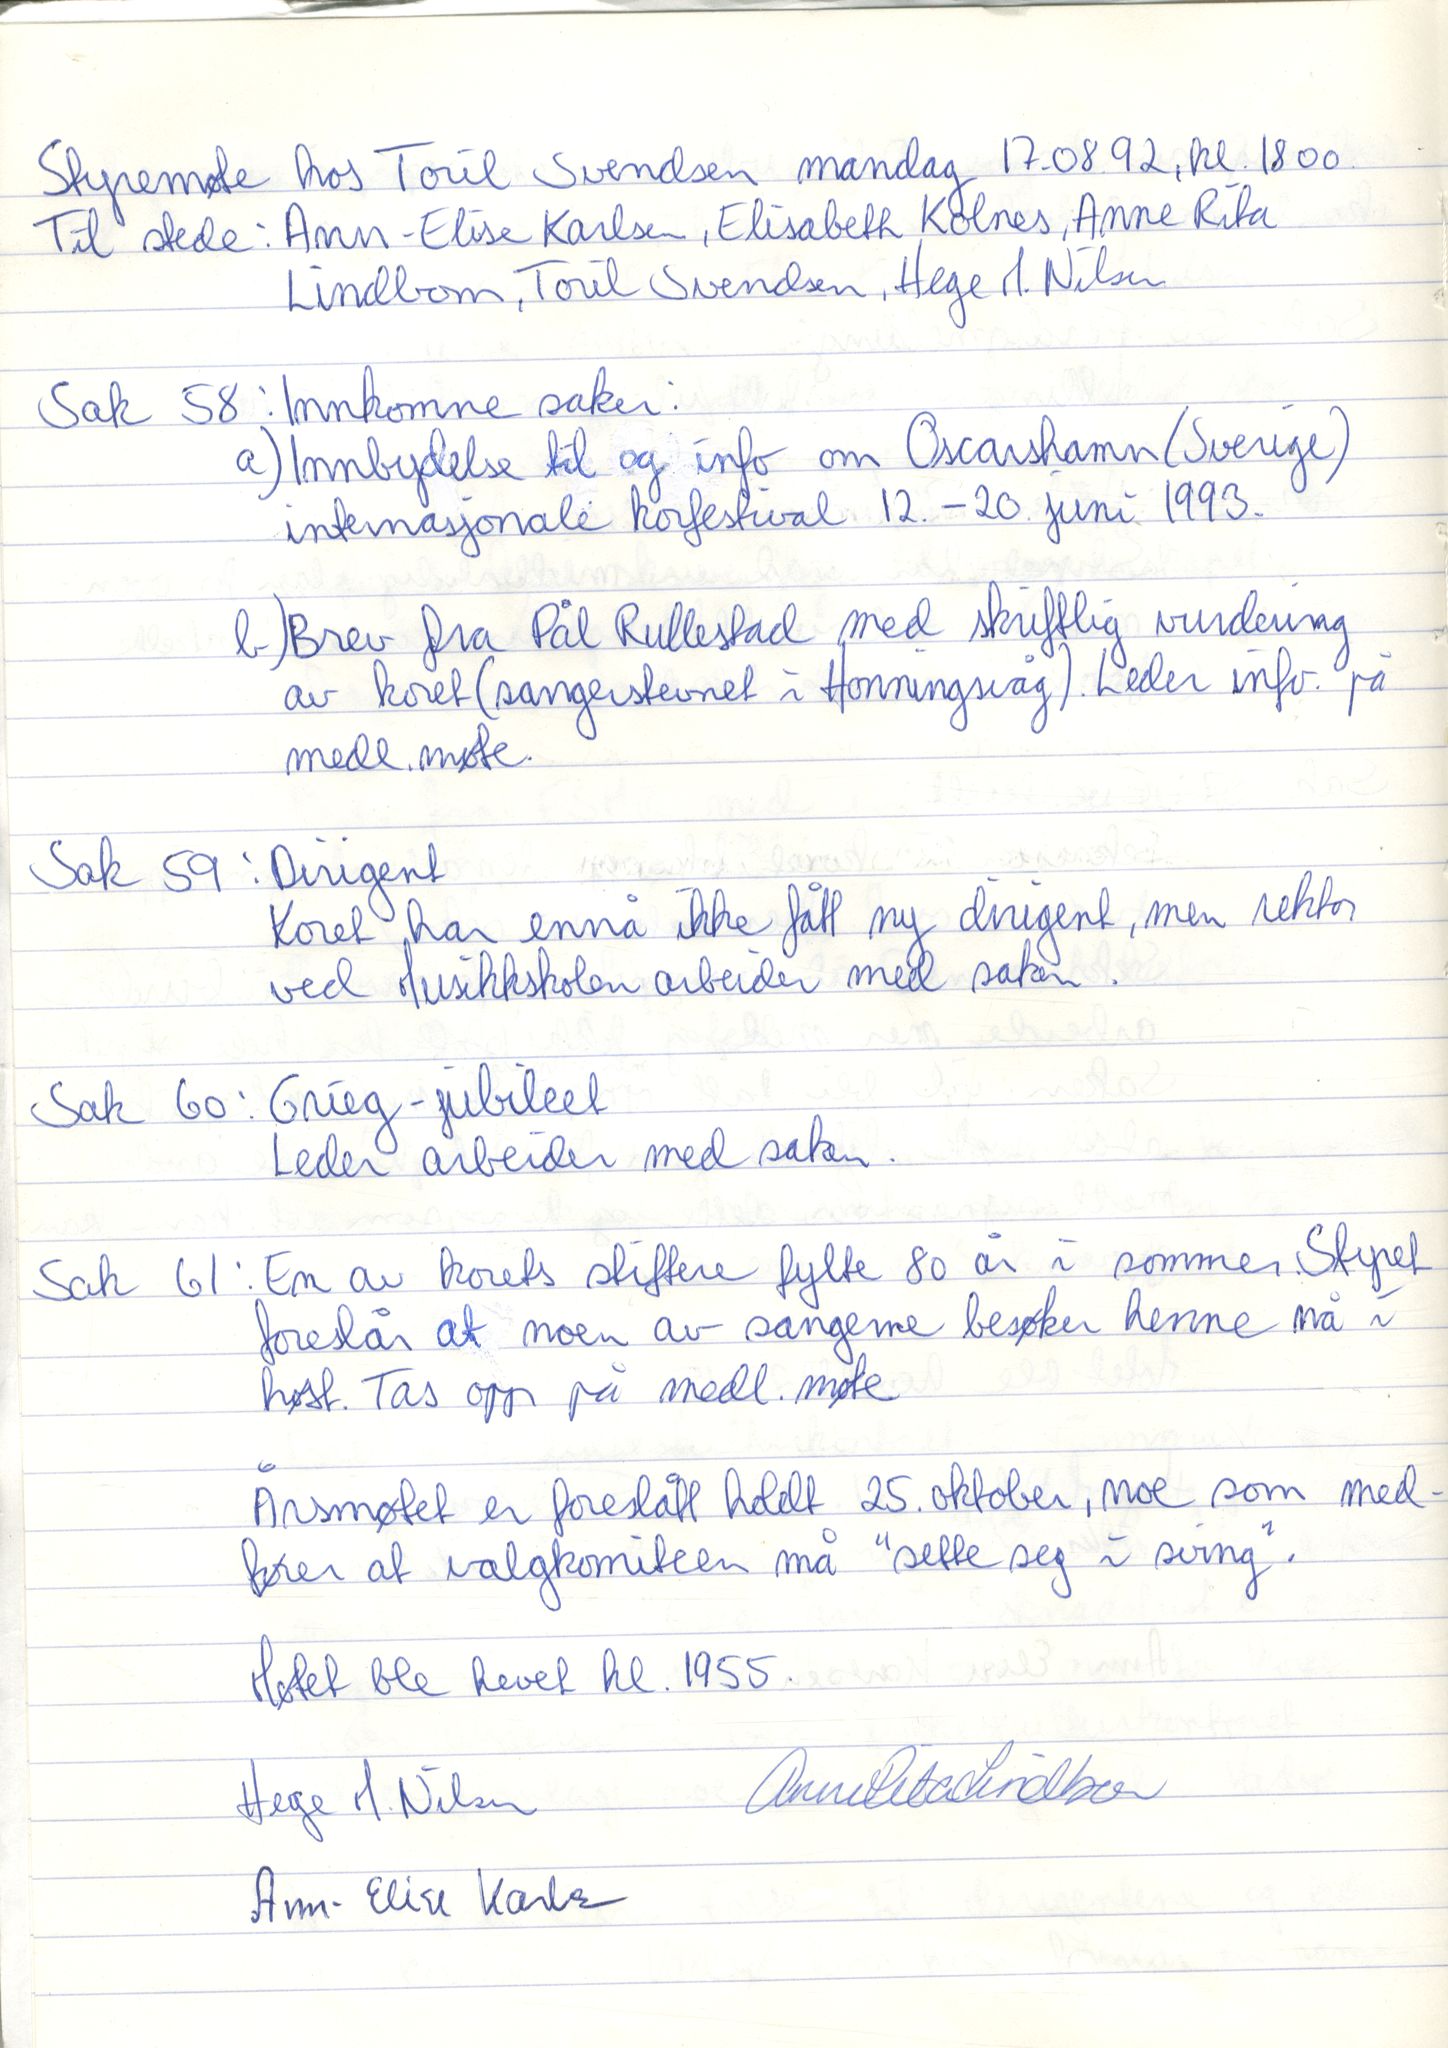 Styremøte hos Toril Svendsen mandag 17.08.92, kl. 1800.
Til stede: Ann-Elise Karlsen, Elisabeth Kolnes, Anne Rita
Lindbom, Toril Svendsen, Hege M. Nilsen
Sak 58: Innkomne saker:
a) Innbydelse til og info om Oscarshamn (Sverige)
internasjonale korfestival 12.-20. juni 1993.
b) Brev fra Pål Rullestad med skriftlig vurdering
av koret (sangerstevnet i Honningsvåg). Leder info. på
medl.møte.
Sak 59: Dirigent
Koret har ennå ikke fått ny dirigent, men rektor
ved Musikkskolen arbeider med saken.
Sak 60: Grieg-jubileet
Leder arbeider med saken.
Sak 61: En av korets stiftere fylte 80 år i sommer. Styret
foreslår at noen av sangerne besøker henne nå i
høst. Tas opp på medl.møte
Årsmøtet er foreslått holdt 25. oktober, noe som med-
fører at valgkomiteen må "sette seg i sving".
Møtet ble hevet kl. 1955.
Hege M. Nilsen Anne Rita Lindbom
Ann-Elise Karlsen